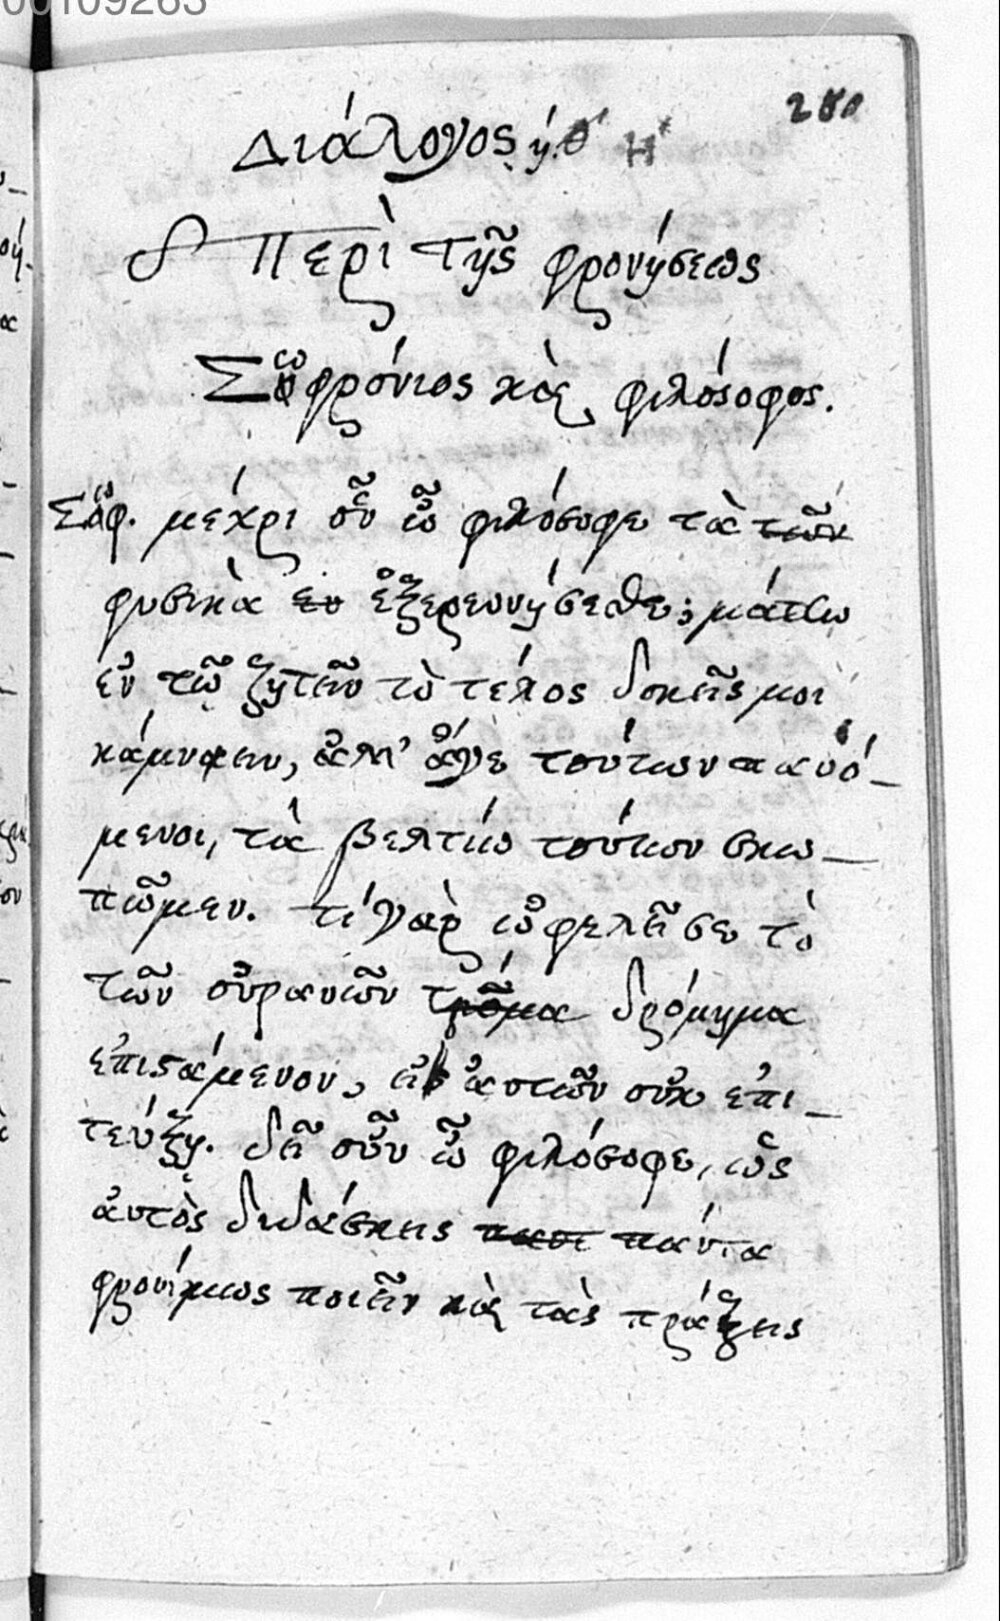 00109263
280
Διάλογος η. θ΄ Η
Περὶ τῆς φρονήσεως
Σωφρόνιος καὶ φιλόσοφος.
Σωφ. μέχρι οὗ ὦ φιλόσοφε τὰ τῶν
φυσικὰ ἐξερευνήσεθε; μάτίω
ἐν τῷ ζητεῖν τὸ τέλος δοκεῖς μοι
κάμνειν, ἀλλ' ἄγε τούτων παυό-
μενοι, τὰ βελτίω τούτων σκω-
πῶμεν. τί γὰρ ὠφελεῖ σε τὸ
τῶν οὐρανῶν δρόμημα
ἐπιστάμενον, αὐτῶν οὐκ ἐπι-
τεύξῃ. δεῖ οὖν ὦ φιλόσοφε, ὡς
αὐτὸς διδάσκεις πάντα
φρονίμως ποιεῖν καὶ τὰς πράξεις